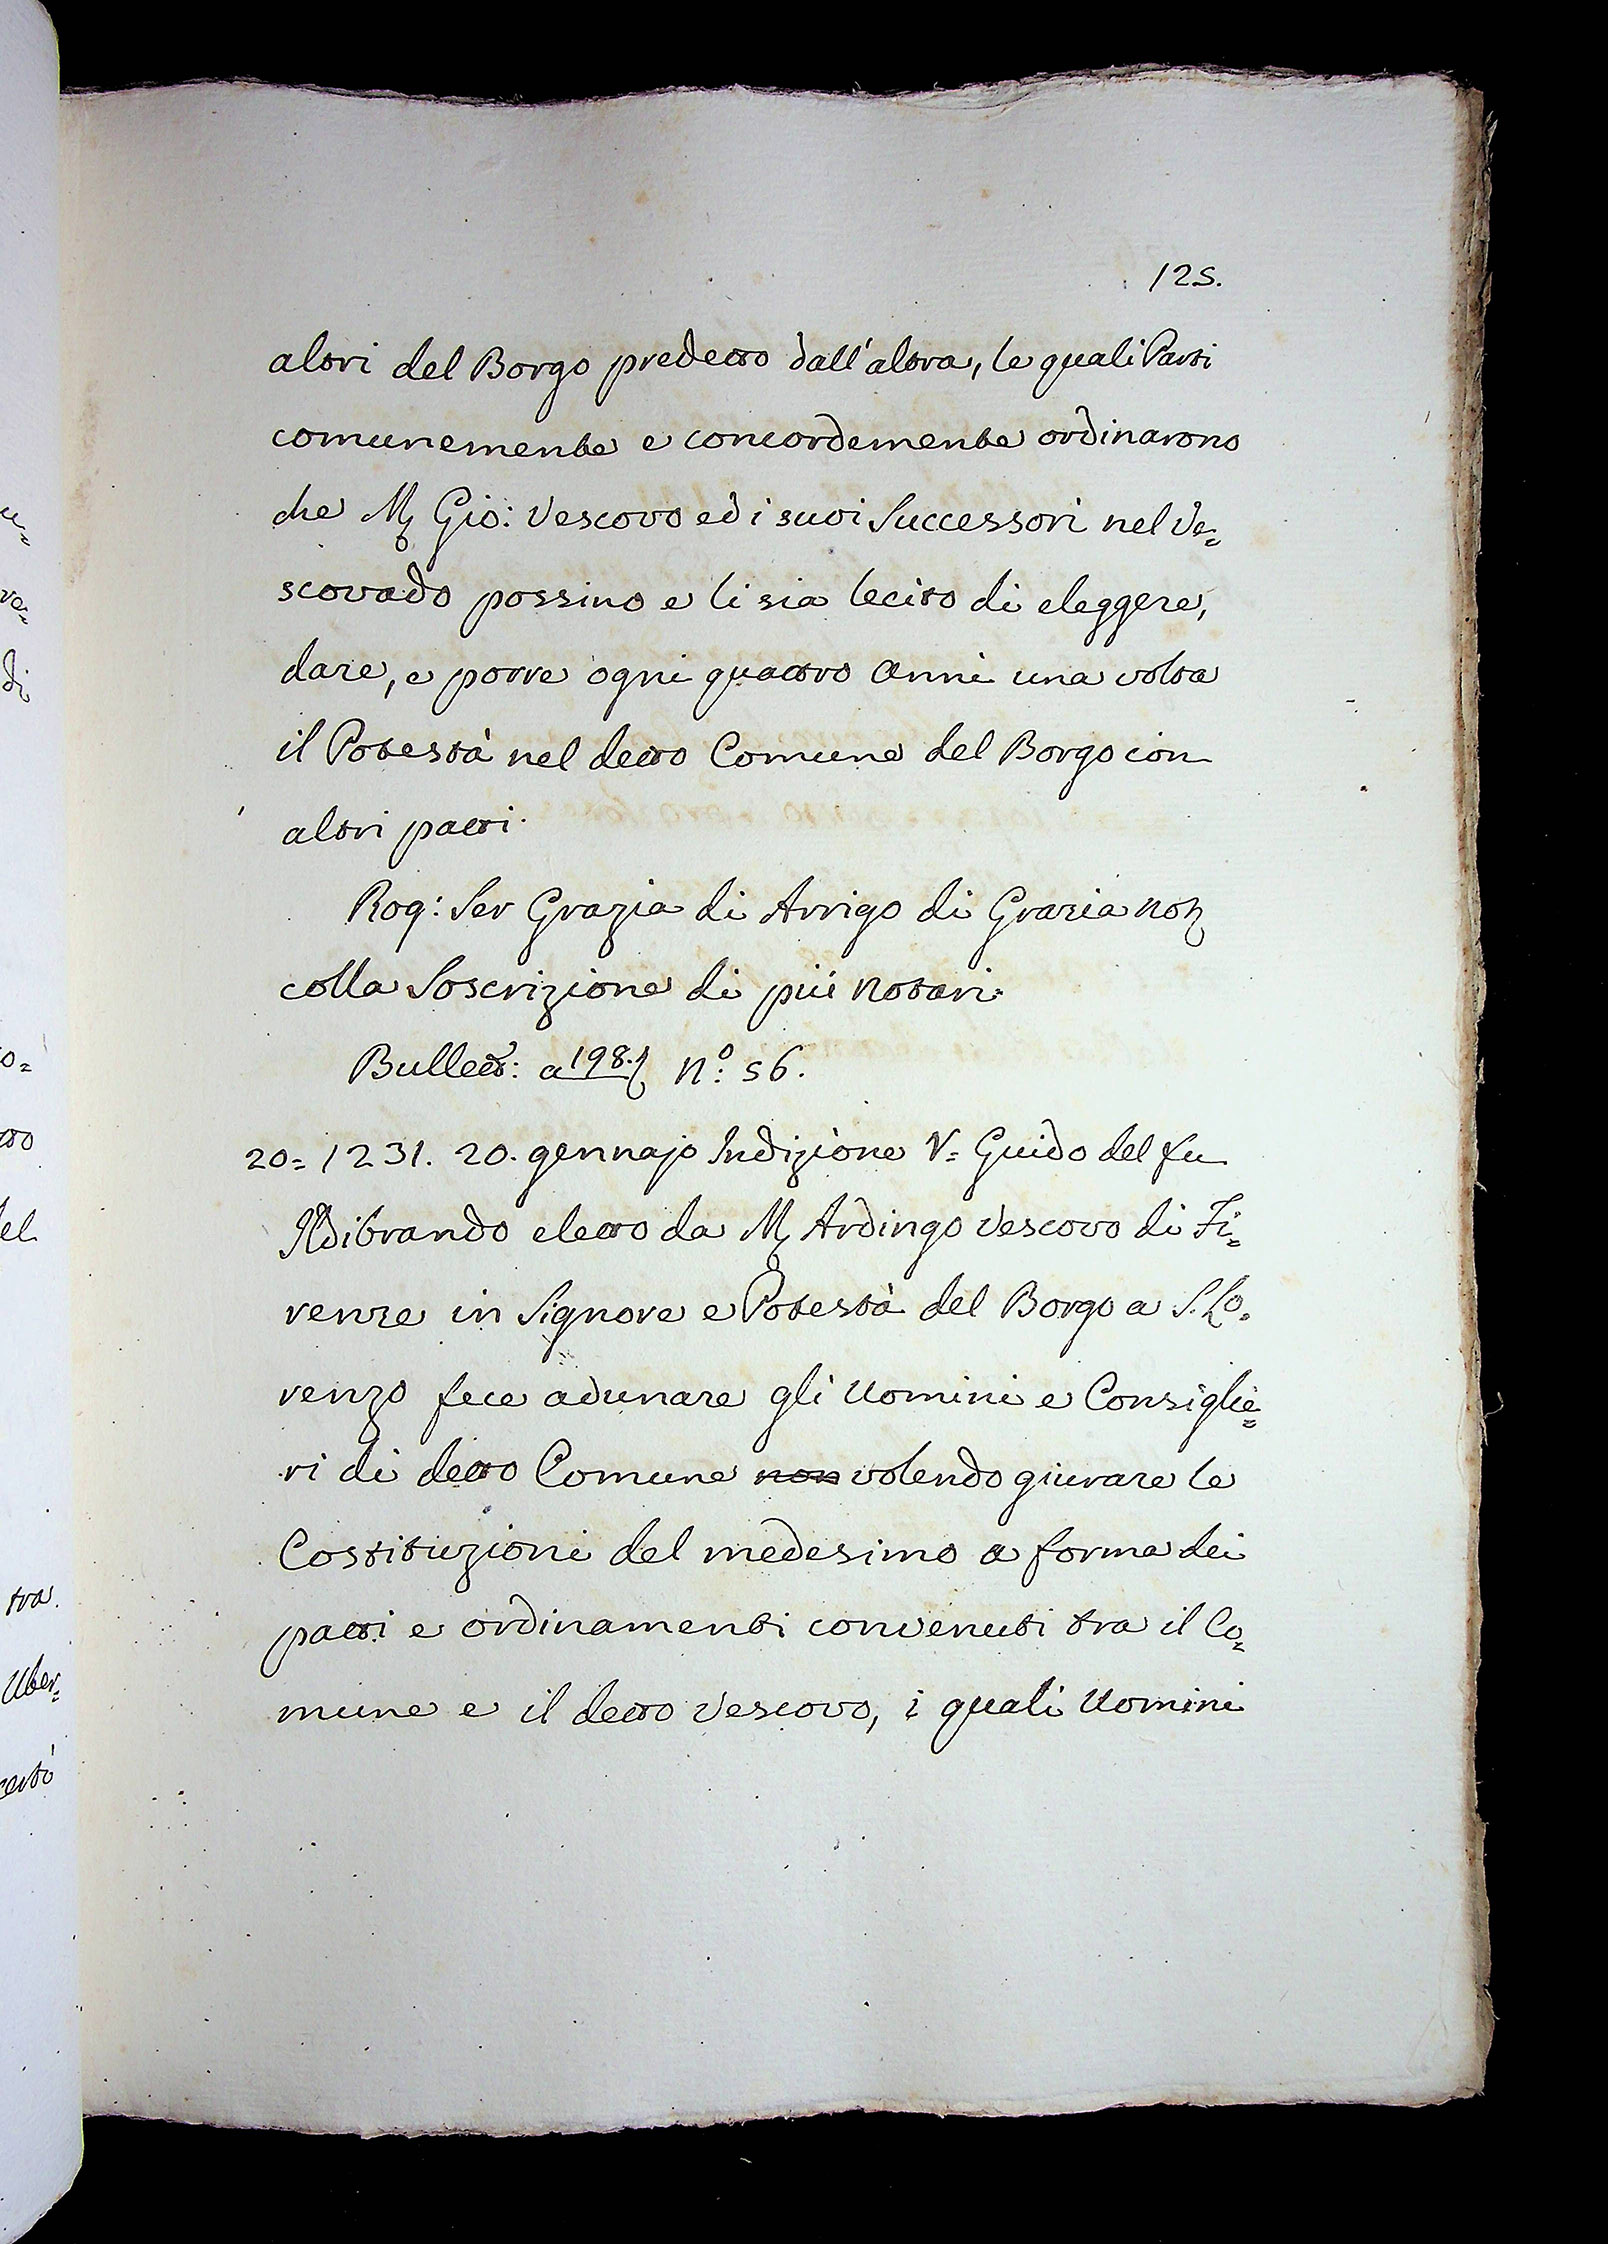 125.
altri del Borgo predetto dall'altra, le quali Parti
comunemente e concordemente ordinarono
che M. Gio: Vescovo ed i suoi Successori nel Ve=
scovado possino e li sia lecito di eleggere,
dare, e porre ogni quattro Anni una volta
il Potestà nel detto Comune del Borgo con
altri patti.
Rog: Ser Grazia di Arrigo di Grazia Not
colla Soscrizione di più Notari.
Bullett: a 198. N.º 56.
20= 1231. 20. gennajo Indizione V= Guido del fu
Ildibrando eletto da M. Ardingo Vescovo di Fi=
renze in Signore e Potestà del Borgo a S. Lo=
renzo fece adunare gli Uomini e Consiglie=
ri di detto Comune non volendo giurare le
Costituzioni del medesimo a forma dei
patti e ordinamenti convenuti tra il Co=
mune e il detto Vescovo, i quali Uomini